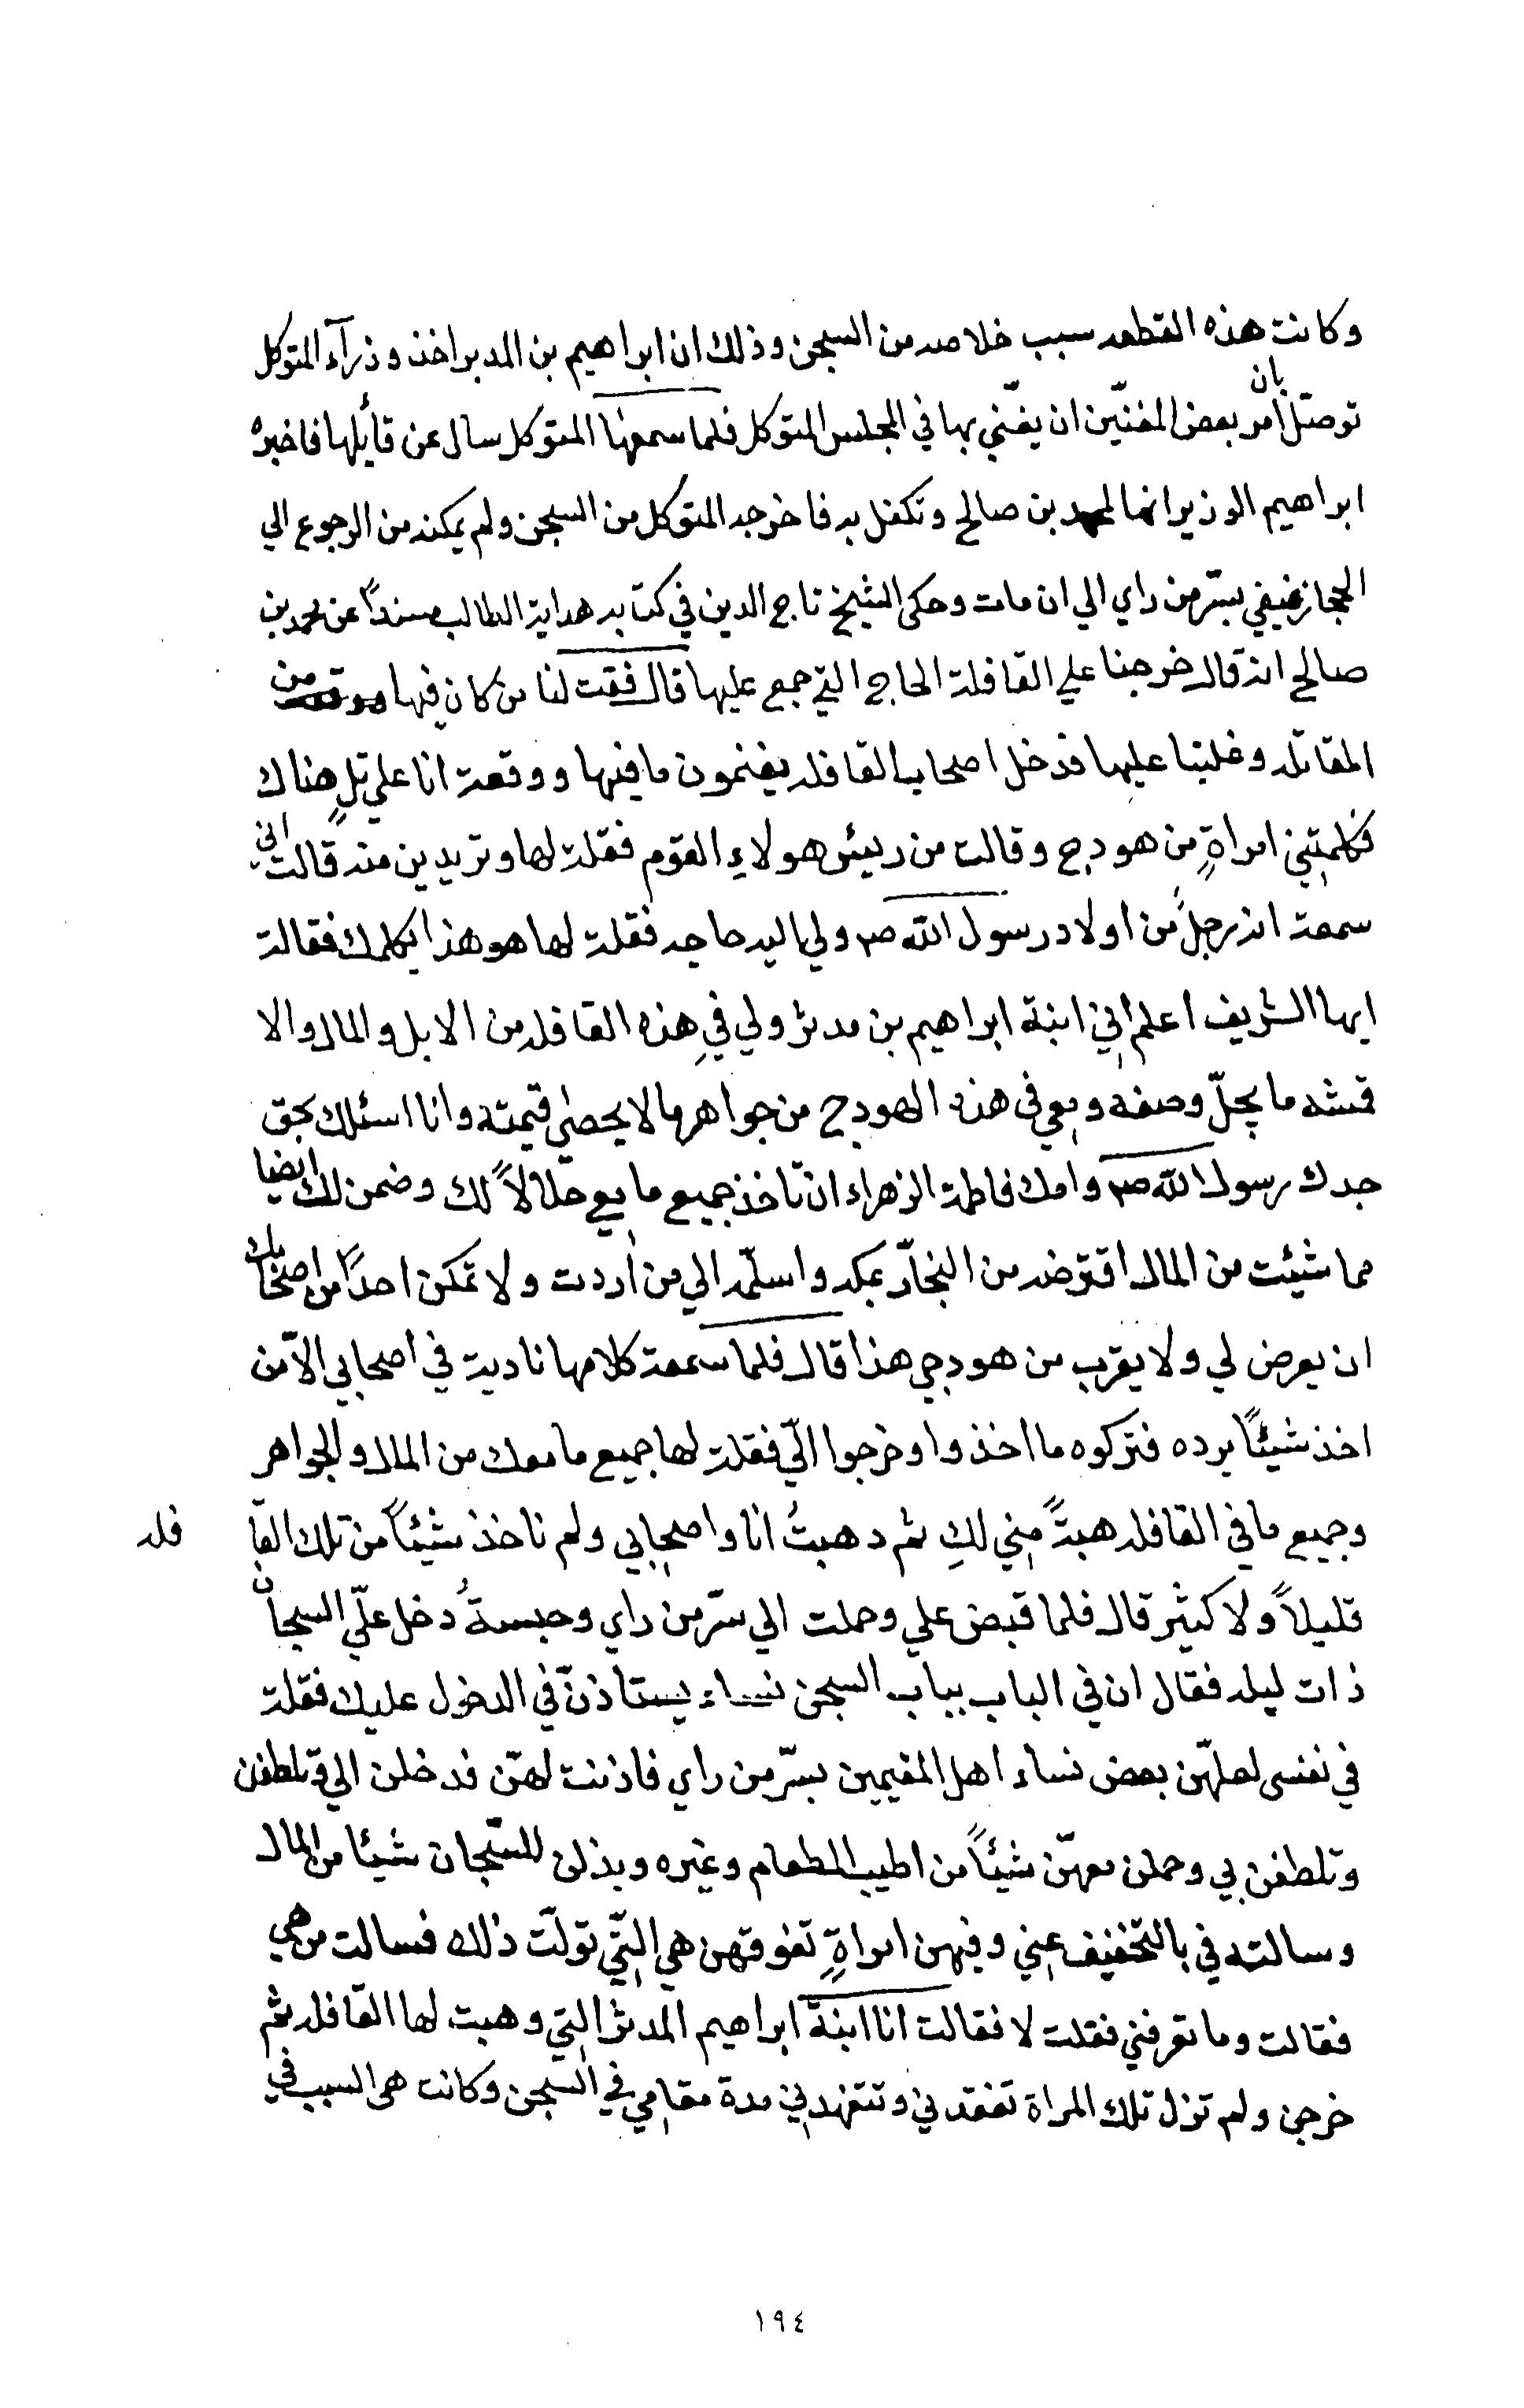 وكانت هذه القطعه سبب خلاصه من السجن وذلك ان ابراهيم بن المدبر اخذ وذرآء المتوكل
توصّل بان امر بعض المغنّين ان يغنّي بها في المجلس المتوكل فلما سمعها المتوكل سال عن قائلها فاخبره
ابراهيم الوزير انها لمحمد بن صالح وتكفل به فاخرجه المتوكل من السجن ولم يمكنه من الرجوع الي
الحجاز فبقي بسرّ من راي الي ان مات وحكى الشيخ تاج الدين في كتابه هداية الطالب مسنداً عن محمد بن
صالح انه قال خرجنا علي القافلة الحاج التي جمع عليها قال فقت لنا من كان فيها من
المقاتله وغلبنا عليها فدخل اصحاب القافله يغنمون ما فيها ووقعة انا علي تلٍ هناك
فكلمتني امراةٍ من هودج وقالت من رييس هولاءِ القوم فقلة لها وتريدين منه قالت اني
سمعة انه رجلٌ من اولاد رسول الله ص ولي اليه حاجه فقلة لها هو هذا يكلمك فقالة
ايها الشريف اعلم اني ابنة ابراهيم بن مدبر ولي في هذه القافله من الابل والمال والا
قمشه ما يجلّ وصفه ومعي في هذه الهودج من جواهر ما لا يحصٰي قيمته وانا اسئلك بحق
جدك رسول الله ص وامك فاطمة الزهراء ان تاخذ جميع ما معي حلالاً لك وضمن لك ايضا
مما شئت من المال اقترضه من التجّار بمكه واسلّمه الي من اردت ولا تمكن احداً من اصحابك
ان يعرض لي ولا يقرب من هودجي هذا قال فلما سمعة كلامها ناديت في اصحابي الآ من
اخذ شيئاً يرده فتركوه ما اخذوا وخرجوا اليّ فقلة لها جميع ما معك من المال والجواهر
وجميع ما في القافله هبةً مني لكِ ثم دهبتُ انا واصحابي ولم ناخذ شيئاً من تلك القا فله
قليلاً ولا كثير قال فلما قبض علي وحملت الي سرّ من راي وحبسةُ دخل عليّ السجان
ذات ليله فقال ان في الباب بباب السجن نساء يستاذنّ في الدخول عليك فقلة
في نفسى لعلهّن بعض نساء اهل المقيمين بسرّ من راي فاذنت لهنّ فدخلن الي وتلطفن
وتلطفن بي وحملن معهنّ شيئاً من اطيب الطعام وغيره وبذلن للسّجان شيئا من المال
وسالته في بالتخفيف عني وفيهن امراةٍ تفوقهن هي الّتي تولّت ذلك فسالت من هي
فقالت وما تعرفني فقلت لا فقالت انا ابنة ابراهيم المدبر التي وهبت لها القافله ثم
خرجن ولم تزل تلك المراة تفقدني وتتعهدني مدة مقامي في السجن وكانت هى السبب في
١٩٤